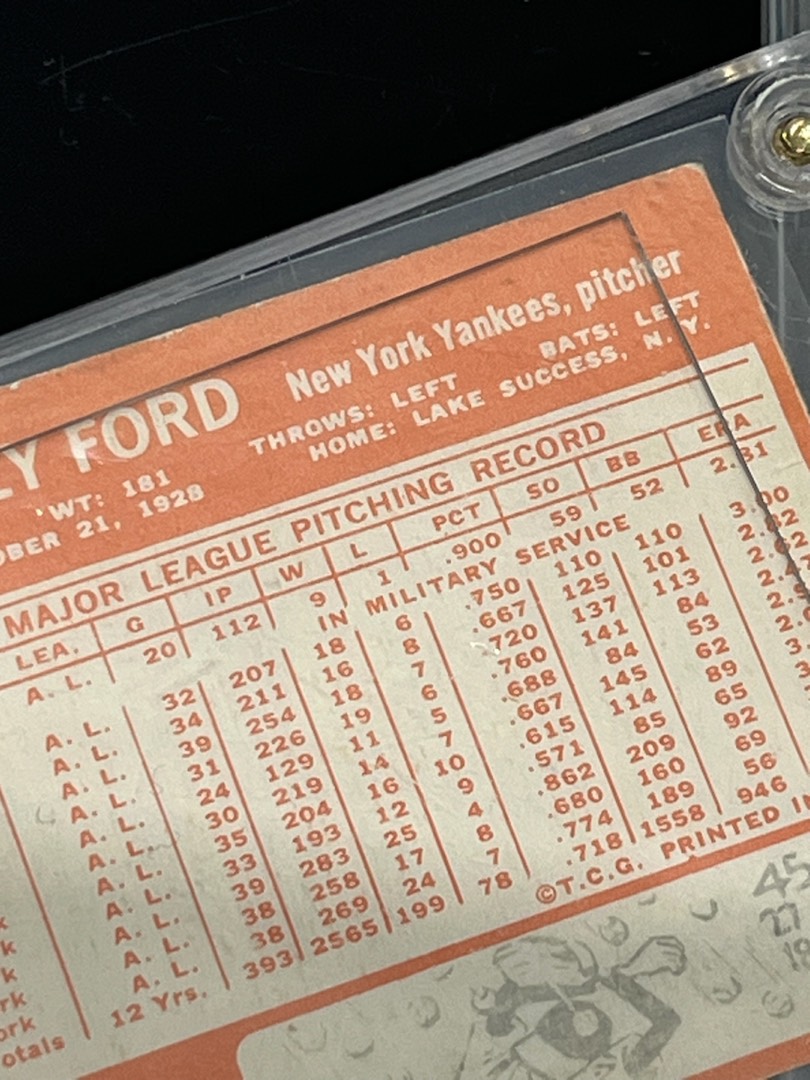 New York Yankees, pitcher
FORD
THROWS: LEFT BATS: LEFT
WT: 181 HOME: LAKE SUCCESS, N. Y.
OBER 21, 1928
MAJOR LEAGUE PITCHING RECORD
LEA. G IP W L PCT SO BB ERA
A. L. 20 112 9 1 .900 59 52 2.81
IN MILITARY SERVICE
A. L. 32 207 18 6 .750 110 110 3.00
A. L. 34 211 16 8 .667 125 101 2.82
A. L. 39 254 18 7 .720 137 113 2.62
A. L. 31 226 19 6 .760 141 84
A. L. 24 129 11 5 .688 84 53
A. L. 30 219 14 7 .667 145 62
A. L. 35 204 16 10 .615 114 89
A. L. 33 193 12 9 .571 85 65
A. L. 39 283 25 4 .862 209 92
A. L. 38 258 17 8 .680 160 69
A. L. 38 269 24 7 .774 189 56
otals 12 Yrs. 393 2565 199 78 .718 1558 946
©T.C.G. PRINTED I
45
27